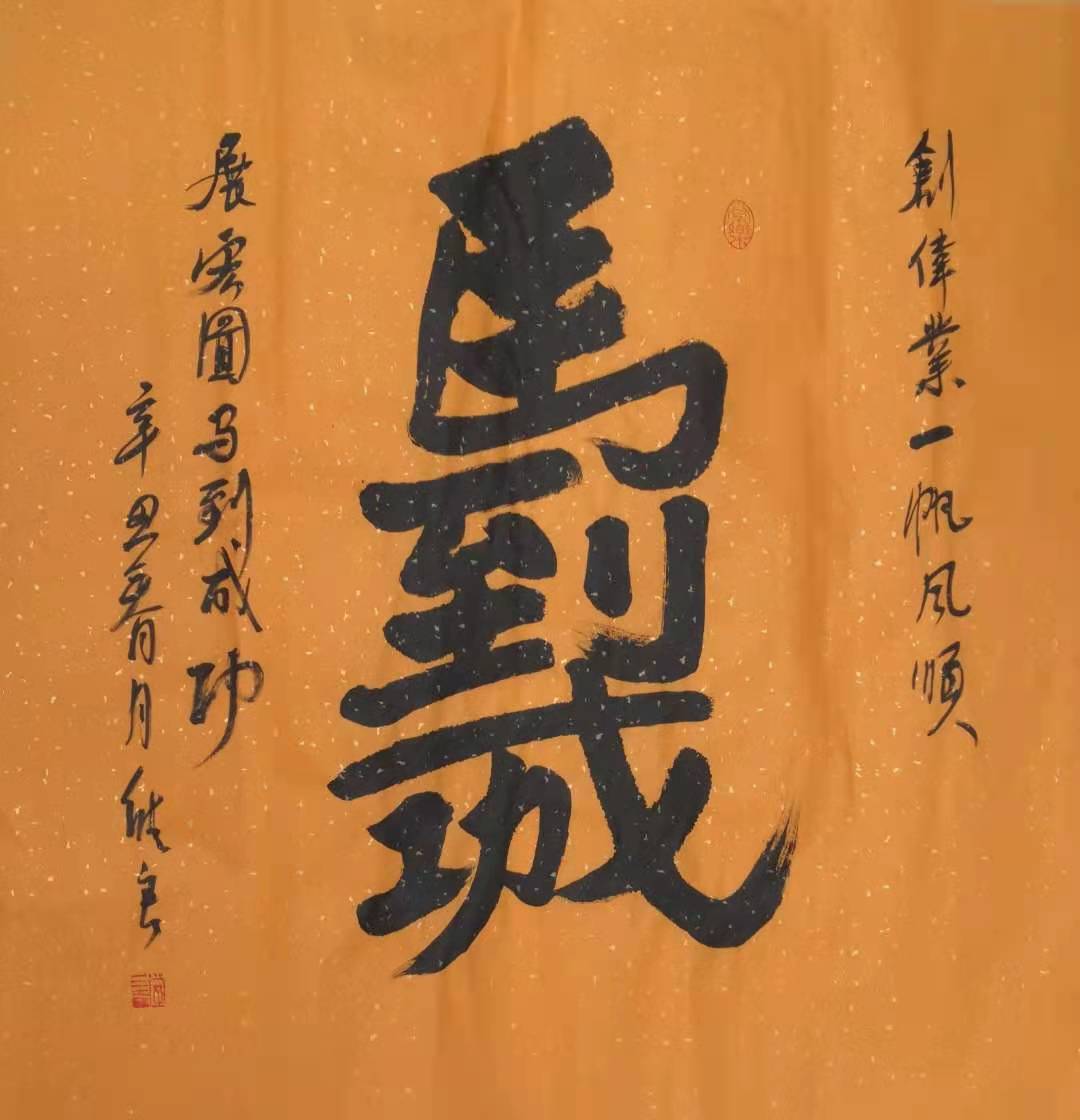 創偉業一帆風順
馬到成功
展宏圖馬到成功
辛丑春月